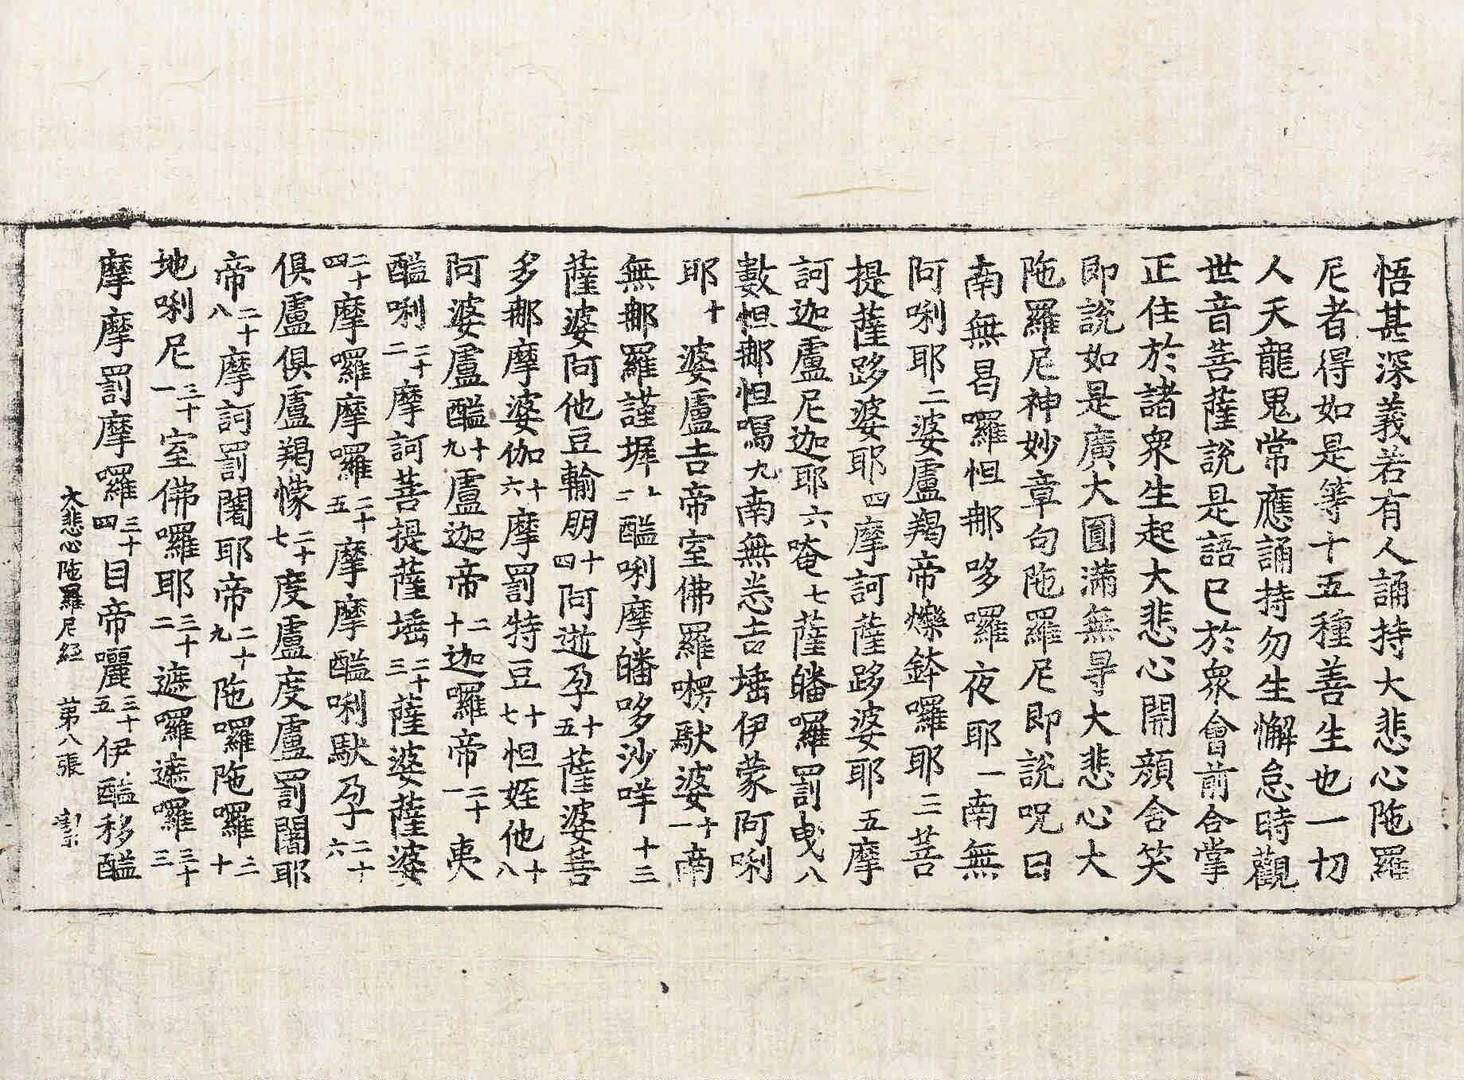 悟甚深義若有人誦持大悲心陁羅
尼者得如是等十五種善生也一切
人天龍鬼常應誦持勿生懈怠時觀
世音菩薩說是語已於衆會前合掌
正住於諸衆生起大悲心開顔含笑
即說如是廣大圓滿無㝵大悲心大
陁羅尼神妙章句陁羅尼即說呪曰
南無曷囉怛那哆囉夜耶一南無
阿唎耶二婆盧羯帝爍鉢囉耶三菩
提薩跢婆耶四摩訶薩跢婆耶五摩
訶迦盧尼迦耶六唵七薩皤囉罰曳八
數怛那怛寫九南無悉吉埵伊蒙阿唎
耶十婆盧吉帝室佛羅㘄馱婆十一南
無那羅謹墀十二醯唎摩皤哆沙咩十三
薩婆阿他豆輸朋十四阿逝孕十五薩婆菩
多那摩婆伽十六摩罰特豆十七怛姪他十八
阿婆盧醯十九盧迦帝二十迦囉帝二十一夷
醯唎二十二摩訶菩提薩埵二十三薩婆薩婆
二十四摩囉摩囉二十五摩摩醯唎馱孕二十六
俱盧俱盧羯懞二十七度盧度盧罰闍耶
帝二十八摩訶罰闍耶帝二十九陁囉陁囉三十
地唎尼三十一室佛囉耶三十二遮囉遮囉三十三
摩摩罰摩囉三十四目帝囇三十五伊醯移醯
大悲心陁羅尼經 第八張